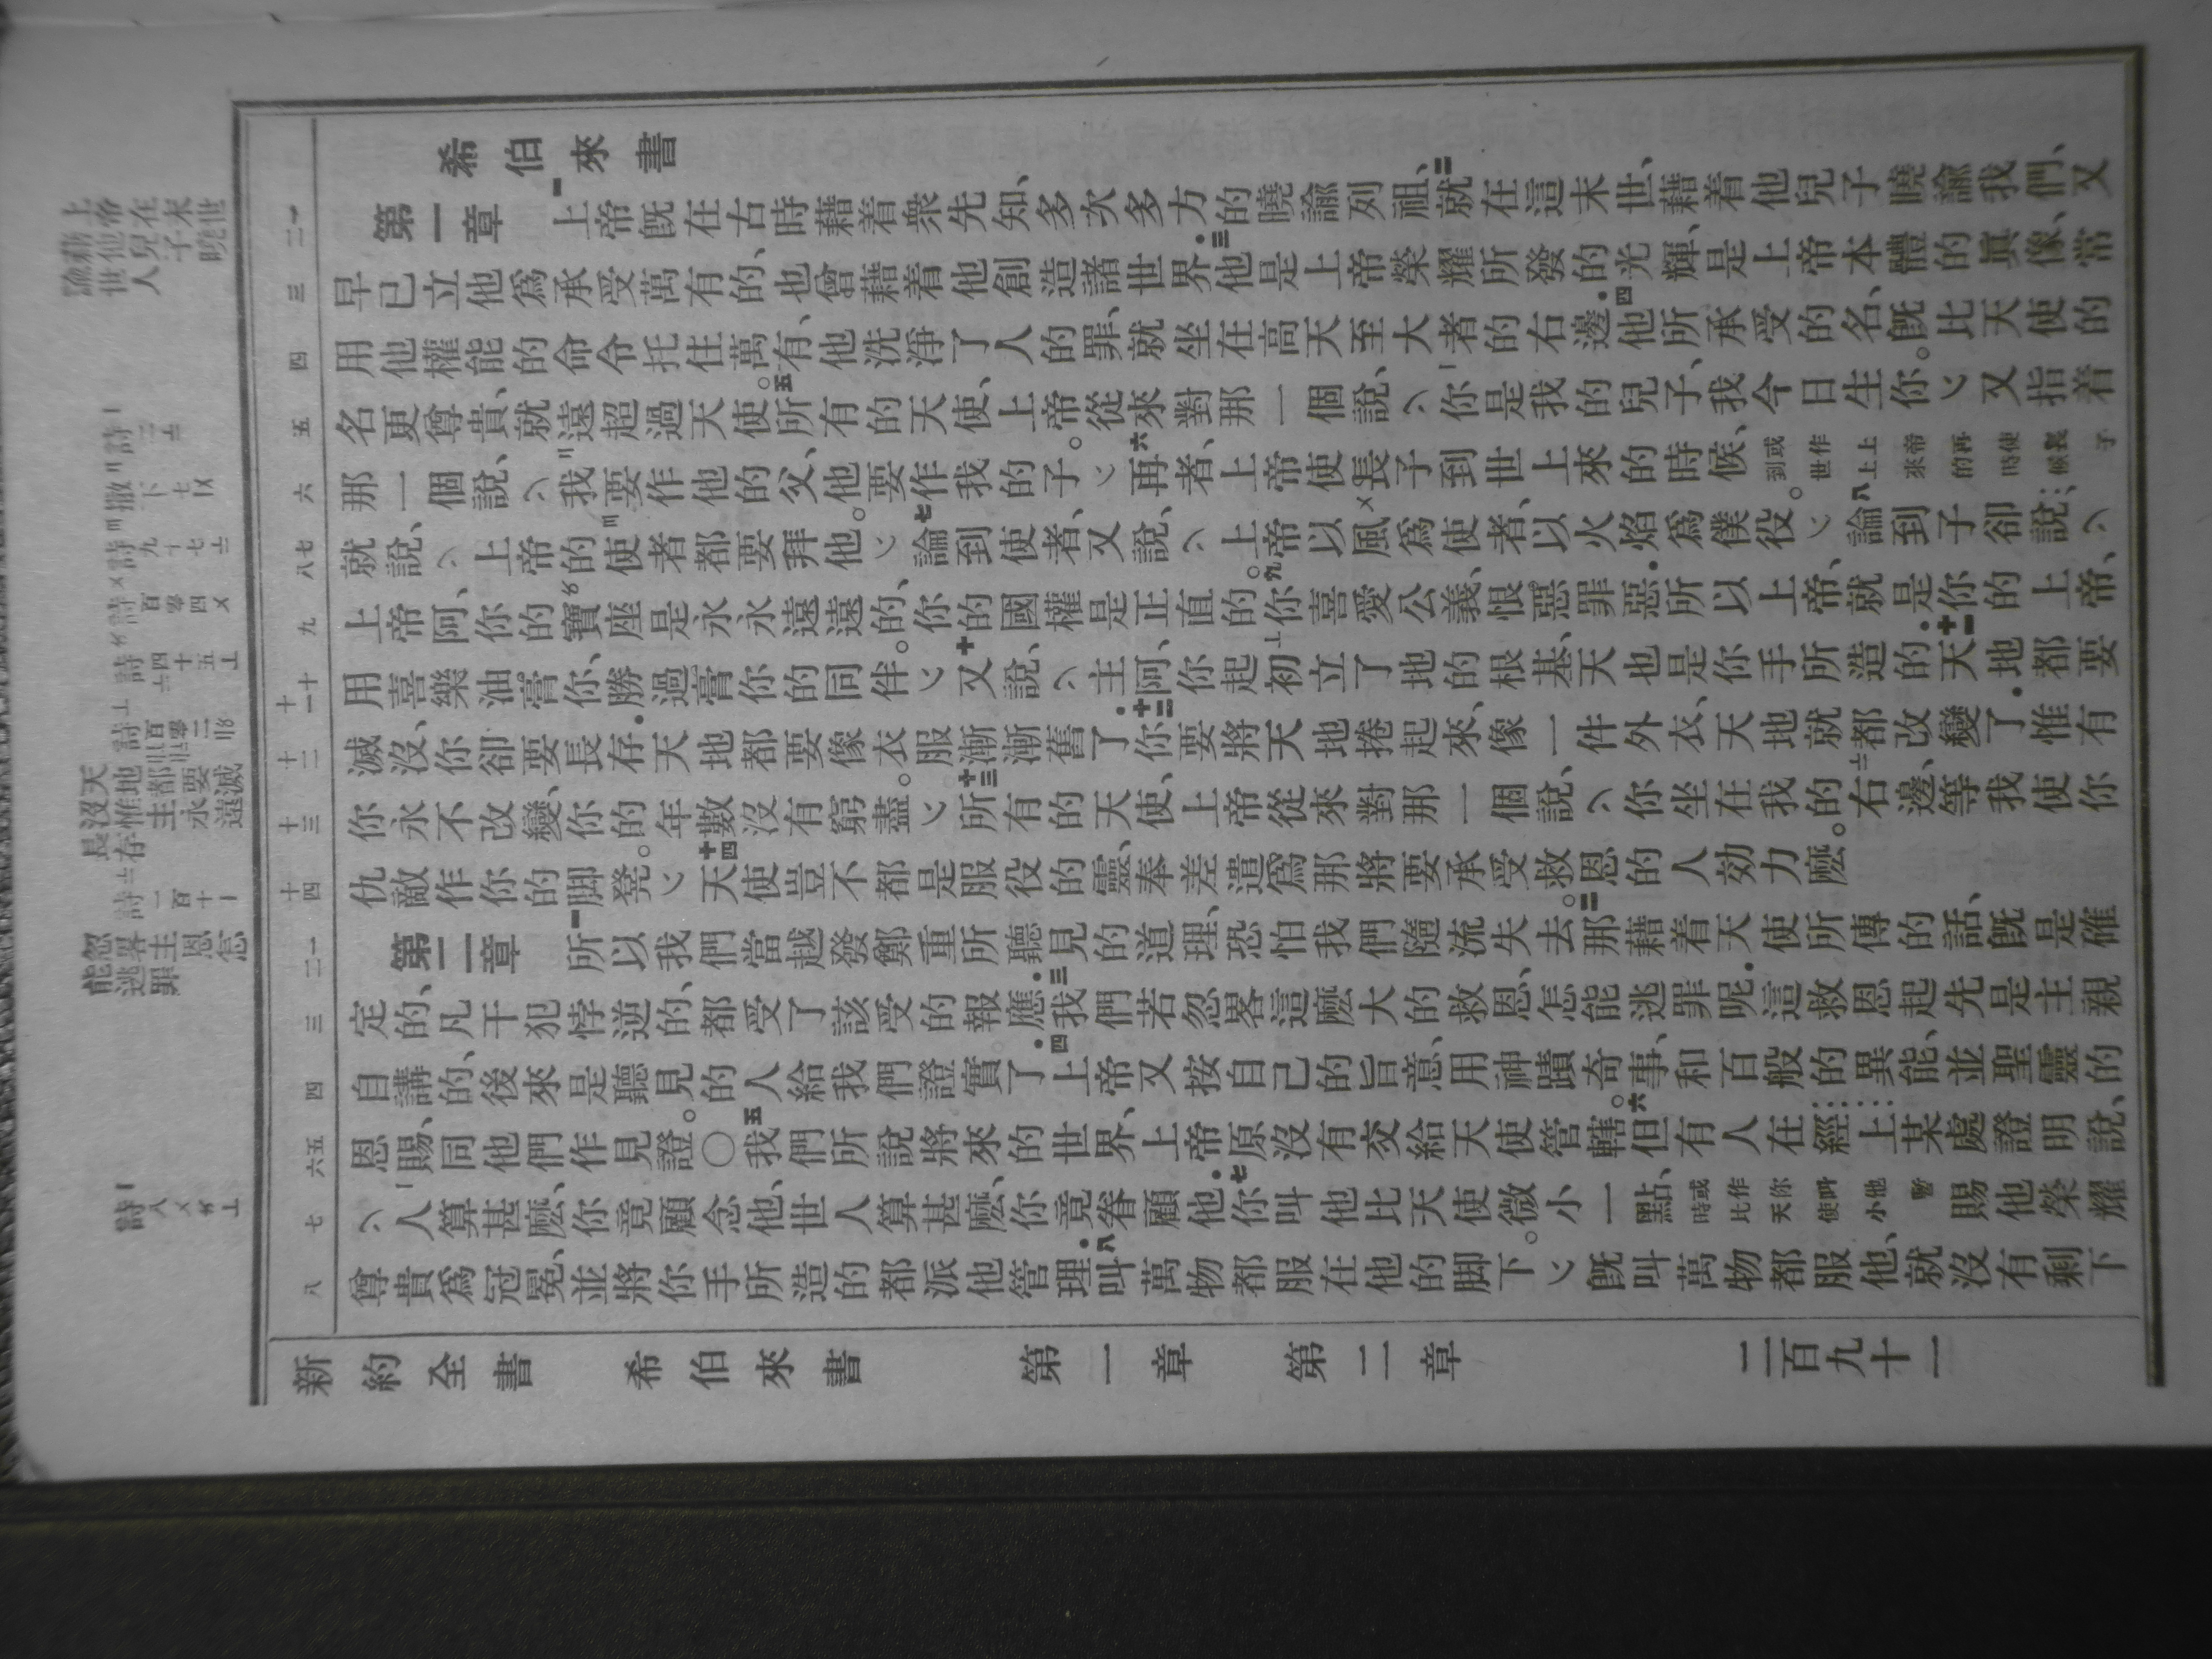 希伯來書
第一章 一上帝既在古時藉着衆先知、多次多方的曉諭列祖、二就在這末世、藉着他兒子曉諭我們、又
早已立他爲承受萬有的、也曾藉着他創造諸世界.三他是上帝榮耀所發的光輝、是上帝本體的眞像、常
用他權能的命令托住萬有、他洗淨了人的罪、就坐在高天至大者的右邊.四他所承受的名、既比天使的
名更尊貴、就遠超過天使。五所有的天使、上帝從來對那一個說、你是我的兒子、我今日生你。又指着
那一個說、我要作他的父、他要作我的子。六再者、上帝使長子到世上來的時候、或作上帝再使長子到世上來的時候
就說、上帝的使者都要拜他。七論到使者、又說、上帝以風爲使者、以火焰爲僕役。八論到子卻說、
上帝阿、你的寶座是永永遠遠的、你的國權是正直的。九你喜愛公義、恨惡罪惡.所以上帝、就是你的上帝、
用喜樂油膏你、勝過膏你的同伴。十又說、主阿、你起初立了地的根基、天也是你手所造的.十一天地都要
滅沒、你卻要長存.天地都要像衣服漸漸舊了.十二你要將天地捲起來、像一件外衣、天地就都改變了.惟有
你永不改變、你的年數沒有窮盡。十三所有的天使、上帝從來對那一個說、你坐在我的右邊、等我使你
仇敵作你的脚凳。十四天使豈不都是服役的靈、奉差遣爲那將要承受救恩的人効力麼。
第二章 一所以我們當越發鄭重所聽見的道理、恐怕我們隨流失去。二那藉着天使所傳的話、既是確
定的、凡干犯悖逆的、都受了該受的報應.三我們若忽畧這麼大的救恩、怎能逃罪呢.這救恩起先是主親
自講的、後來是聽見的人給我們證實了.四上帝又按自己的旨意、用神蹟奇事、和百般的異能、並聖靈的
恩賜、同他們作見證。〇五我們所說將來的世界、上帝原沒有交給天使管轄。六但有人在經上某處證明說、
人算甚麼、你竟顧念他、世人算甚麼、你竟眷顧他.七你叫他比天使微小一點、或作你叫他暫時比天使小賜他榮耀
尊貴爲冠冕、並將你手所造的都派他管理.八叫萬物都服在他的脚下。既叫萬物都服他、就沒有剩下
新約全書 希伯來書 第一章 第二章 二百九十一
上帝在末世藉他兒子曉諭世人
天地都要滅沒惟主永遠長存
忽畧主恩怎能逃罪